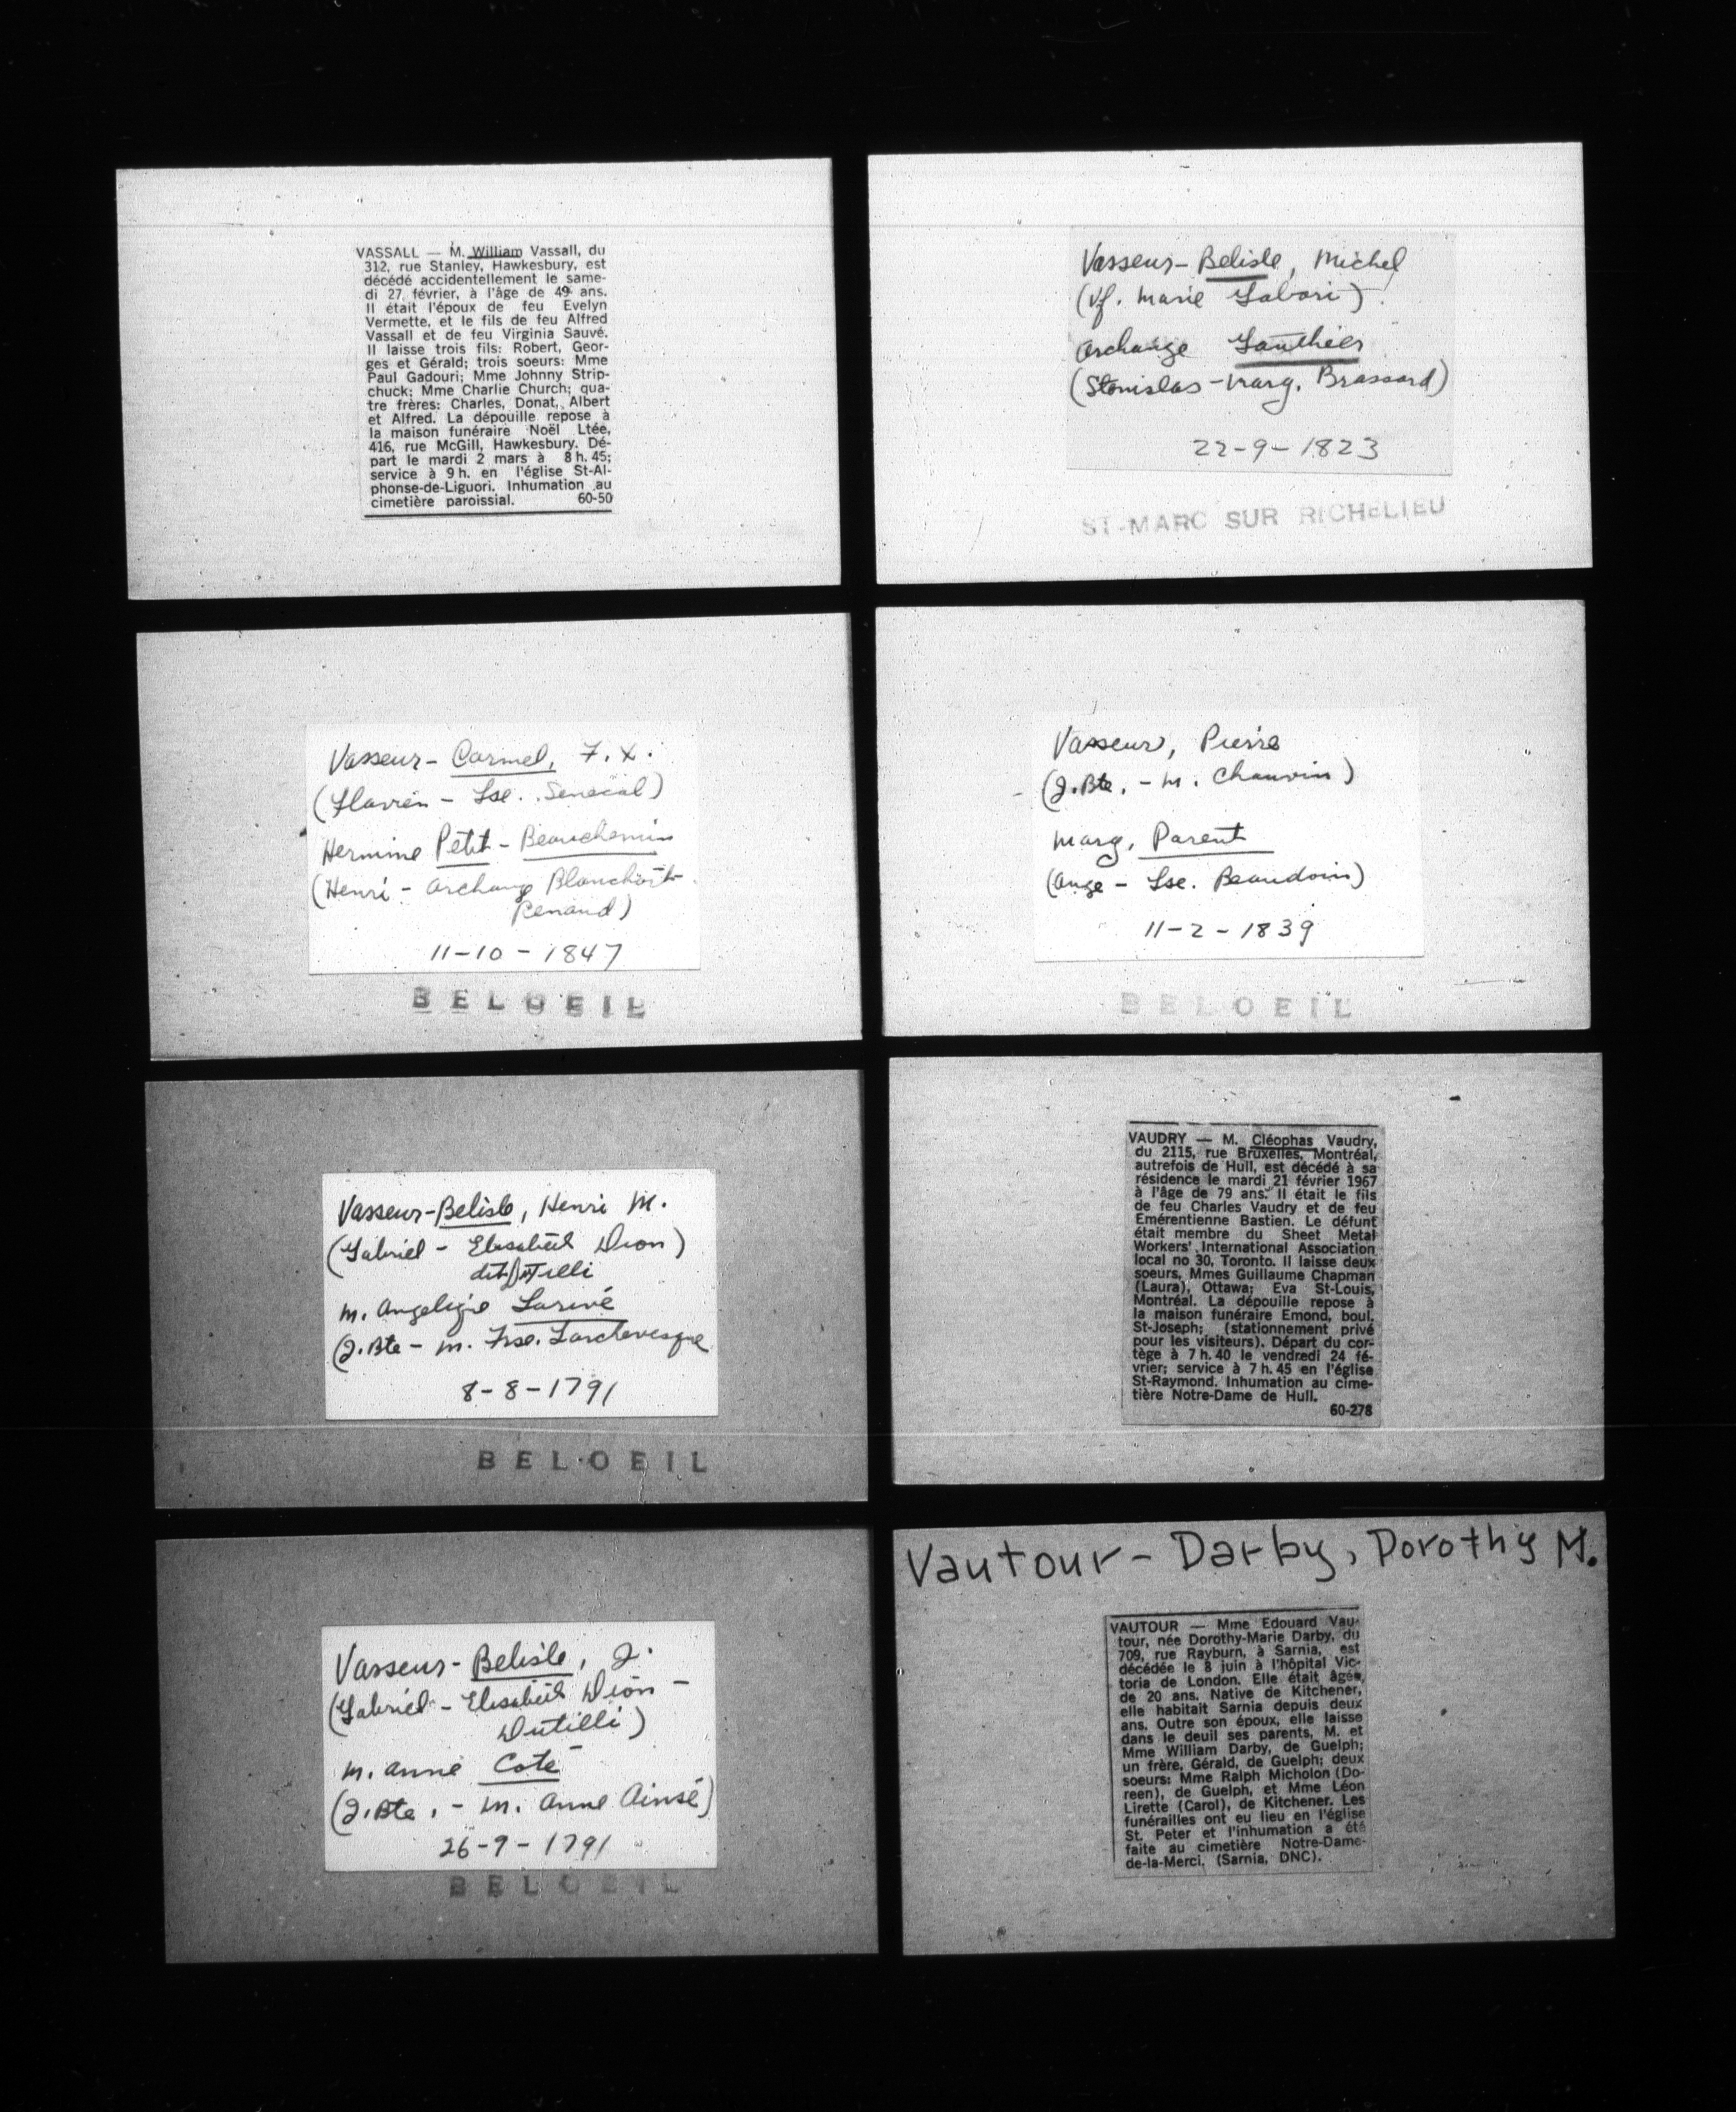 VASSALL — M. William Vassall, du
312, rue Stanley, Hawkesbury, est
décédé accidentellement le same-
di 27 février, à l'âge de 49 ans.
Il était l'époux de feu Evelyn
Vermette, et le fils de feu Alfred
Vassall et de feu Virginia Sauvé.
Il laisse trois fils: Robert, Geor-
ges et Gérald; trois soeurs: Mme
Paul Gadouri; Mme Johnny Strip-
chuck; Mme Charlie Church; qua-
tre frères: Charles, Donat, Albert
et Alfred. La dépouille repose à
la maison funéraire Noël Ltée,
416, rue McGill, Hawkesbury. Dé-
part le mardi 2 mars à 8 h. 45;
service à 9 h. en l'église St-Al-
phonse-de-Liguori. Inhumation au
cimetière paroissial. 60-50
Vasseur-Belisle, Michel
(Vf. Marie Labori)
Archange Gauthier
(Stanislas - Marg. Brassard)
22-9-1823
ST-MARC SUR RICHELIEU
Vasseur- Carmel, F. X.
(Flavien - Lse. Senécal)
Hermine Petit - Beauchemin
(Henri - Archange
Renaud)
11-10-1847
BELOEIL
Vasseur, Pierre
(J.Bte. - M. Chauvin)
Marg. Parent
(Ange - Lse. Beaudoin)
11-2-1839
BELOEIL
Vasseur-Belisle, Henri M.
(Gabriel - Elisabeth Dion)
M. Angeliqie Larivé
(J.Bte - M. Frse. Larchevesque
8-8-1791
BELOEIL
VAUDRY — M. Cléophas Vaudry,
du 2115, rue Bruxelles, Montréal,
autrefois de Hull, est décédé à sa
résidence le mardi 21 février 1967
à l'âge de 79 ans. Il était le fils
de feu Charles Vaudry et de feu
Emérentienne Bastien. Le défunt
était membre du Sheet Metal
Workers' International Association
local no 30, Toronto. Il laisse deux
soeurs, Mmes Guillaume Chapman
(Laura), Ottawa; Eva St-Louis,
Montréal. La dépouille repose à
la maison funéraire Emond, boul.
St-Joseph; (stationnement privé
pour les visiteurs). Départ du cor-
tège à 7 h. 40 le vendredi 24 fé-
vrier; service à 7 h. 45 en l'église
St-Raymond. Inhumation au cime-
tière Notre-Dame de Hull.
60-278
Vasseur-Belisle, J.
(Gabriel - Elisabeth Dion -
Dutilli)
M. Anne Coté
(J.Bte. - M. Anne Ainsé)
26-9-1791
BELOEIL
Vautour-Darby, Dorothy M.
VAUTOUR — Mme Edouard Vau-
tour, née Dorothy-Marie Darby, du
709, rue Rayburn, à Sarnia, est
décédée le 8 juin à l'hôpital Vic-
toria de London. Elle était âgée,
de 20 ans. Native de Kitchener,
elle habitait Sarnia depuis deux
ans. Outre son époux, elle laisse
dans le deuil ses parents, M. et
Mme William Darby, de Guelph;
un frère, Gérald, de Guelph; deux
soeurs: Mme Ralph Micholon (Do-
reen), de Guelph, et Mme Léon
Lirette (Carol), de Kitchener. Les
funérailles ont eu lieu en l'église
St. Peter et l'inhumation a été
faite au cimetière Notre-Dame-
de-la-Merci. (Sarnia, DNC).